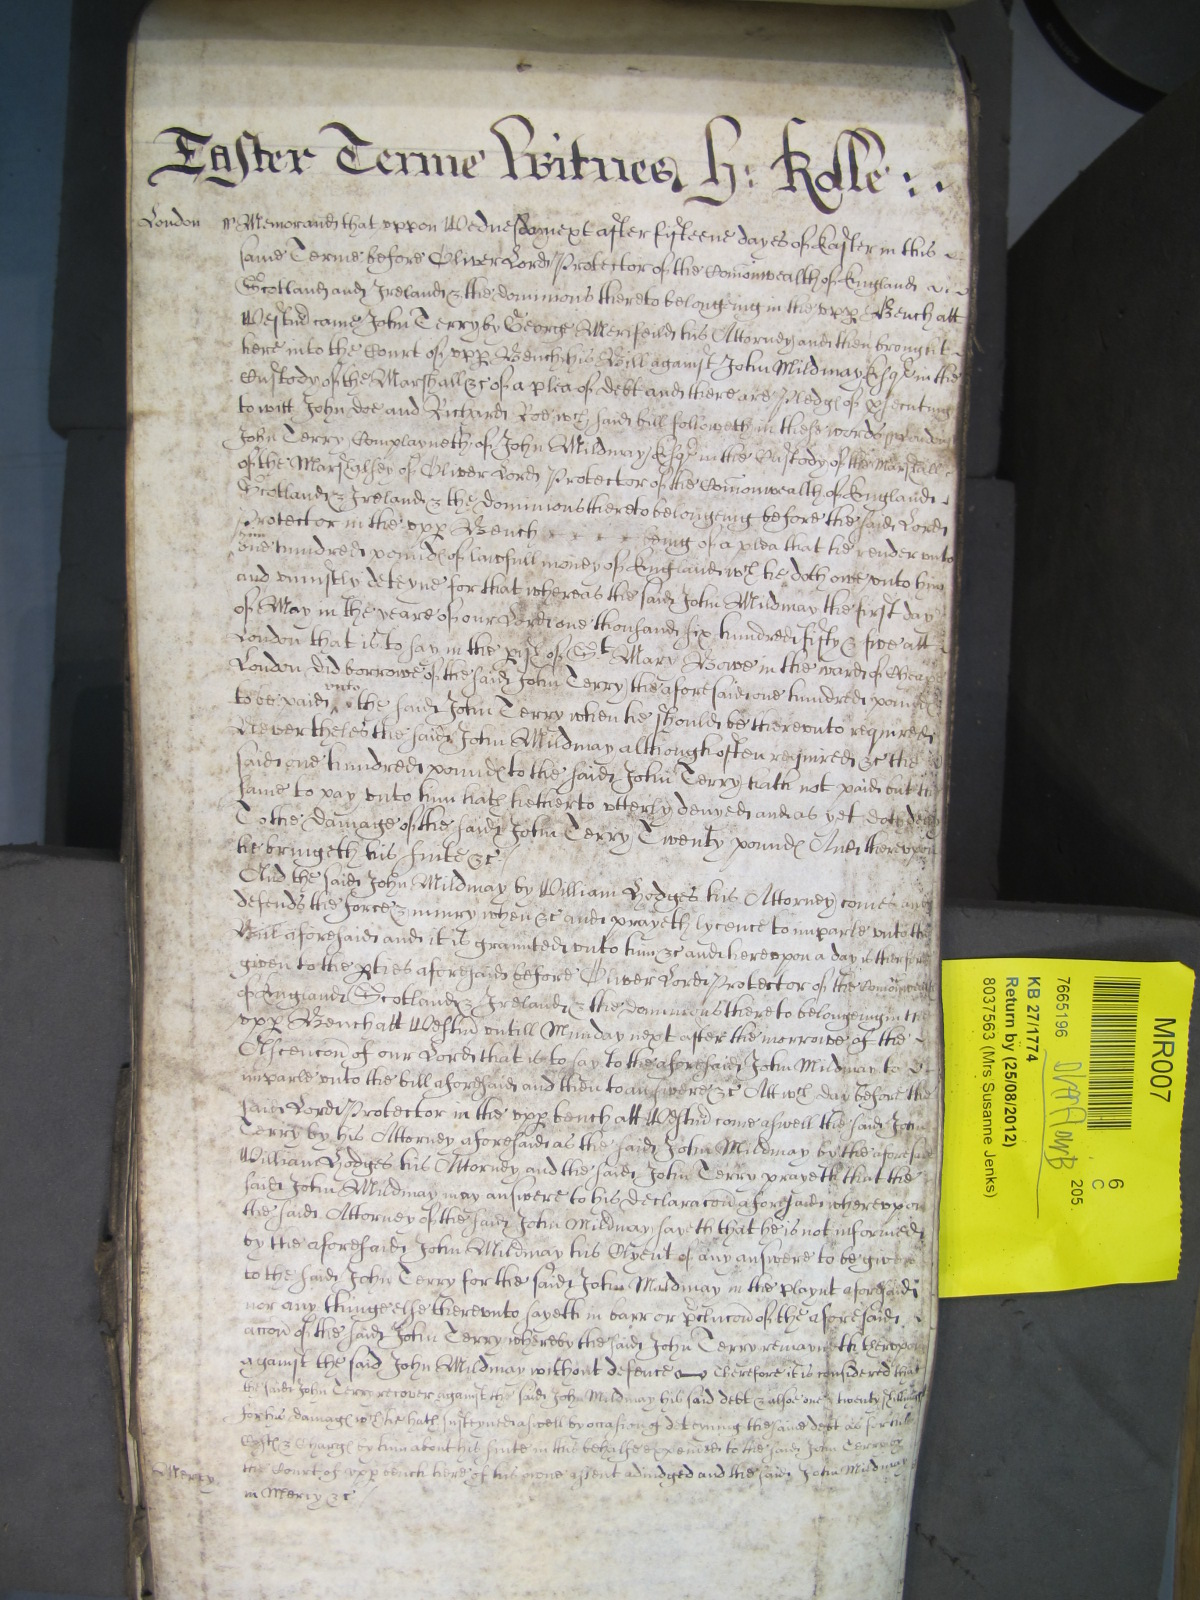 Easter Terme Witnes H: Rolle : .
London ss Memorand that uppon Wednesday next after fifteene dayes of Easter in this
same Terme before Oliver Lord Protector of the Comonwealth of England
Scotland and Ireland & the dominions thereto belongeing in the upp Bench att
Westmr came John Terry by George Merefeild his Attorney and then brought
here into the Court of upp Bench his Bill against John Mildmay Esqr in the
Custody of the Marshall &c of a plea of debt and there are Pledg of psecuting
to witt John Doe and Richard Roe wch said bill followeth in these words ss London
John Terry Complayneth of John Mildmay Esqr in the Custody of the Marshall
of the Marshalsey of Oliver Lord Protector of the Comonwealth of England
Scotland & Ireland & the dominions thereto belongeing before the said Lord
Protector in the upp Bench being of a plea that he render unto
him
one hundred pound of lawfull money of England wch he doth owe unto him
and uniustly deteyne for that whereas the said John Mildmay the first day
of May in the yeare of our Lord one thousand six hundred fifty & five att
London that is to say in the pish of St Mary Bowe in the ward of Cheape
London did borrowe of the said John Terry the aforesaid one hundred pound
to be paid unto the said John Terry when he should be thereunto required
Neverthelesse the said John Mildmay although often required &c the
said one hundred pound to the said John Terry hath not paid but the
same to pay unto him hath hetherto utterly denyed and as yet doth deny
To the damage of the said John Terry Twenty pound And thereupon
he bringeth his suite &c
And the said John Mildmay by William Hodges his Attorney comes and
defends the force & iniury when &c and prayeth lycence to imparle unto the
Bill aforesaid and it is graunted unto him &c and hereupon a day is therefore
given to the pties aforesaid before Oliver Lord Protector of the Comonwealth
of England Scotland & Ireland & the dominions thereto belongeing in the
upp Bench att Westmr untill Munday next after the morrowe of the
Ascencon of our Lord that is to say to the aforesaid John Mildmay to
imparle unto the bill aforesaid and then to answere &c Att wch day before the
said Lord Protector in the upp bench att Westmr come aswell the said John
Terry by his Attorney aforesaid as the said John Mildmay by the aforesaid
William Hodges his Attorney and the said John Terry prayeth that the
said John Mildmay may answere to his declaracon aforesaid whereupon
the said Attorney of the said John Mildmay sayeth that he is not informed
by the aforesaid John Mildmay his Clyent of any answere to be given
to the said John Terry for the said John Mildmay in the playnt aforesaid
nor any thinge else thereunto sayeth in barr or pclucon of the aforesaid
accon of the said John Terry whereby the said John Terry remayneth thereupon
against the said John Mildmay without defence Therefore it is considered that
the said John Terry recover against the said John Mildmay his said debt & alsoe one & twenty shillings
for his damag wch he hath susteyned aswell by occasion of deteyning the said debt as for his
Cost & Charg by him about his suite in this behalfe expended to the said John Terry by
the Court of upp bench here of his owne assent adiudged and the said John Mildmay
Mercy
in Mercy &c
MR007
6
C
205.
7665196
KB 27/1774
Return by (25/08/2012)
8037563 (Mrs Susanne Jenks)